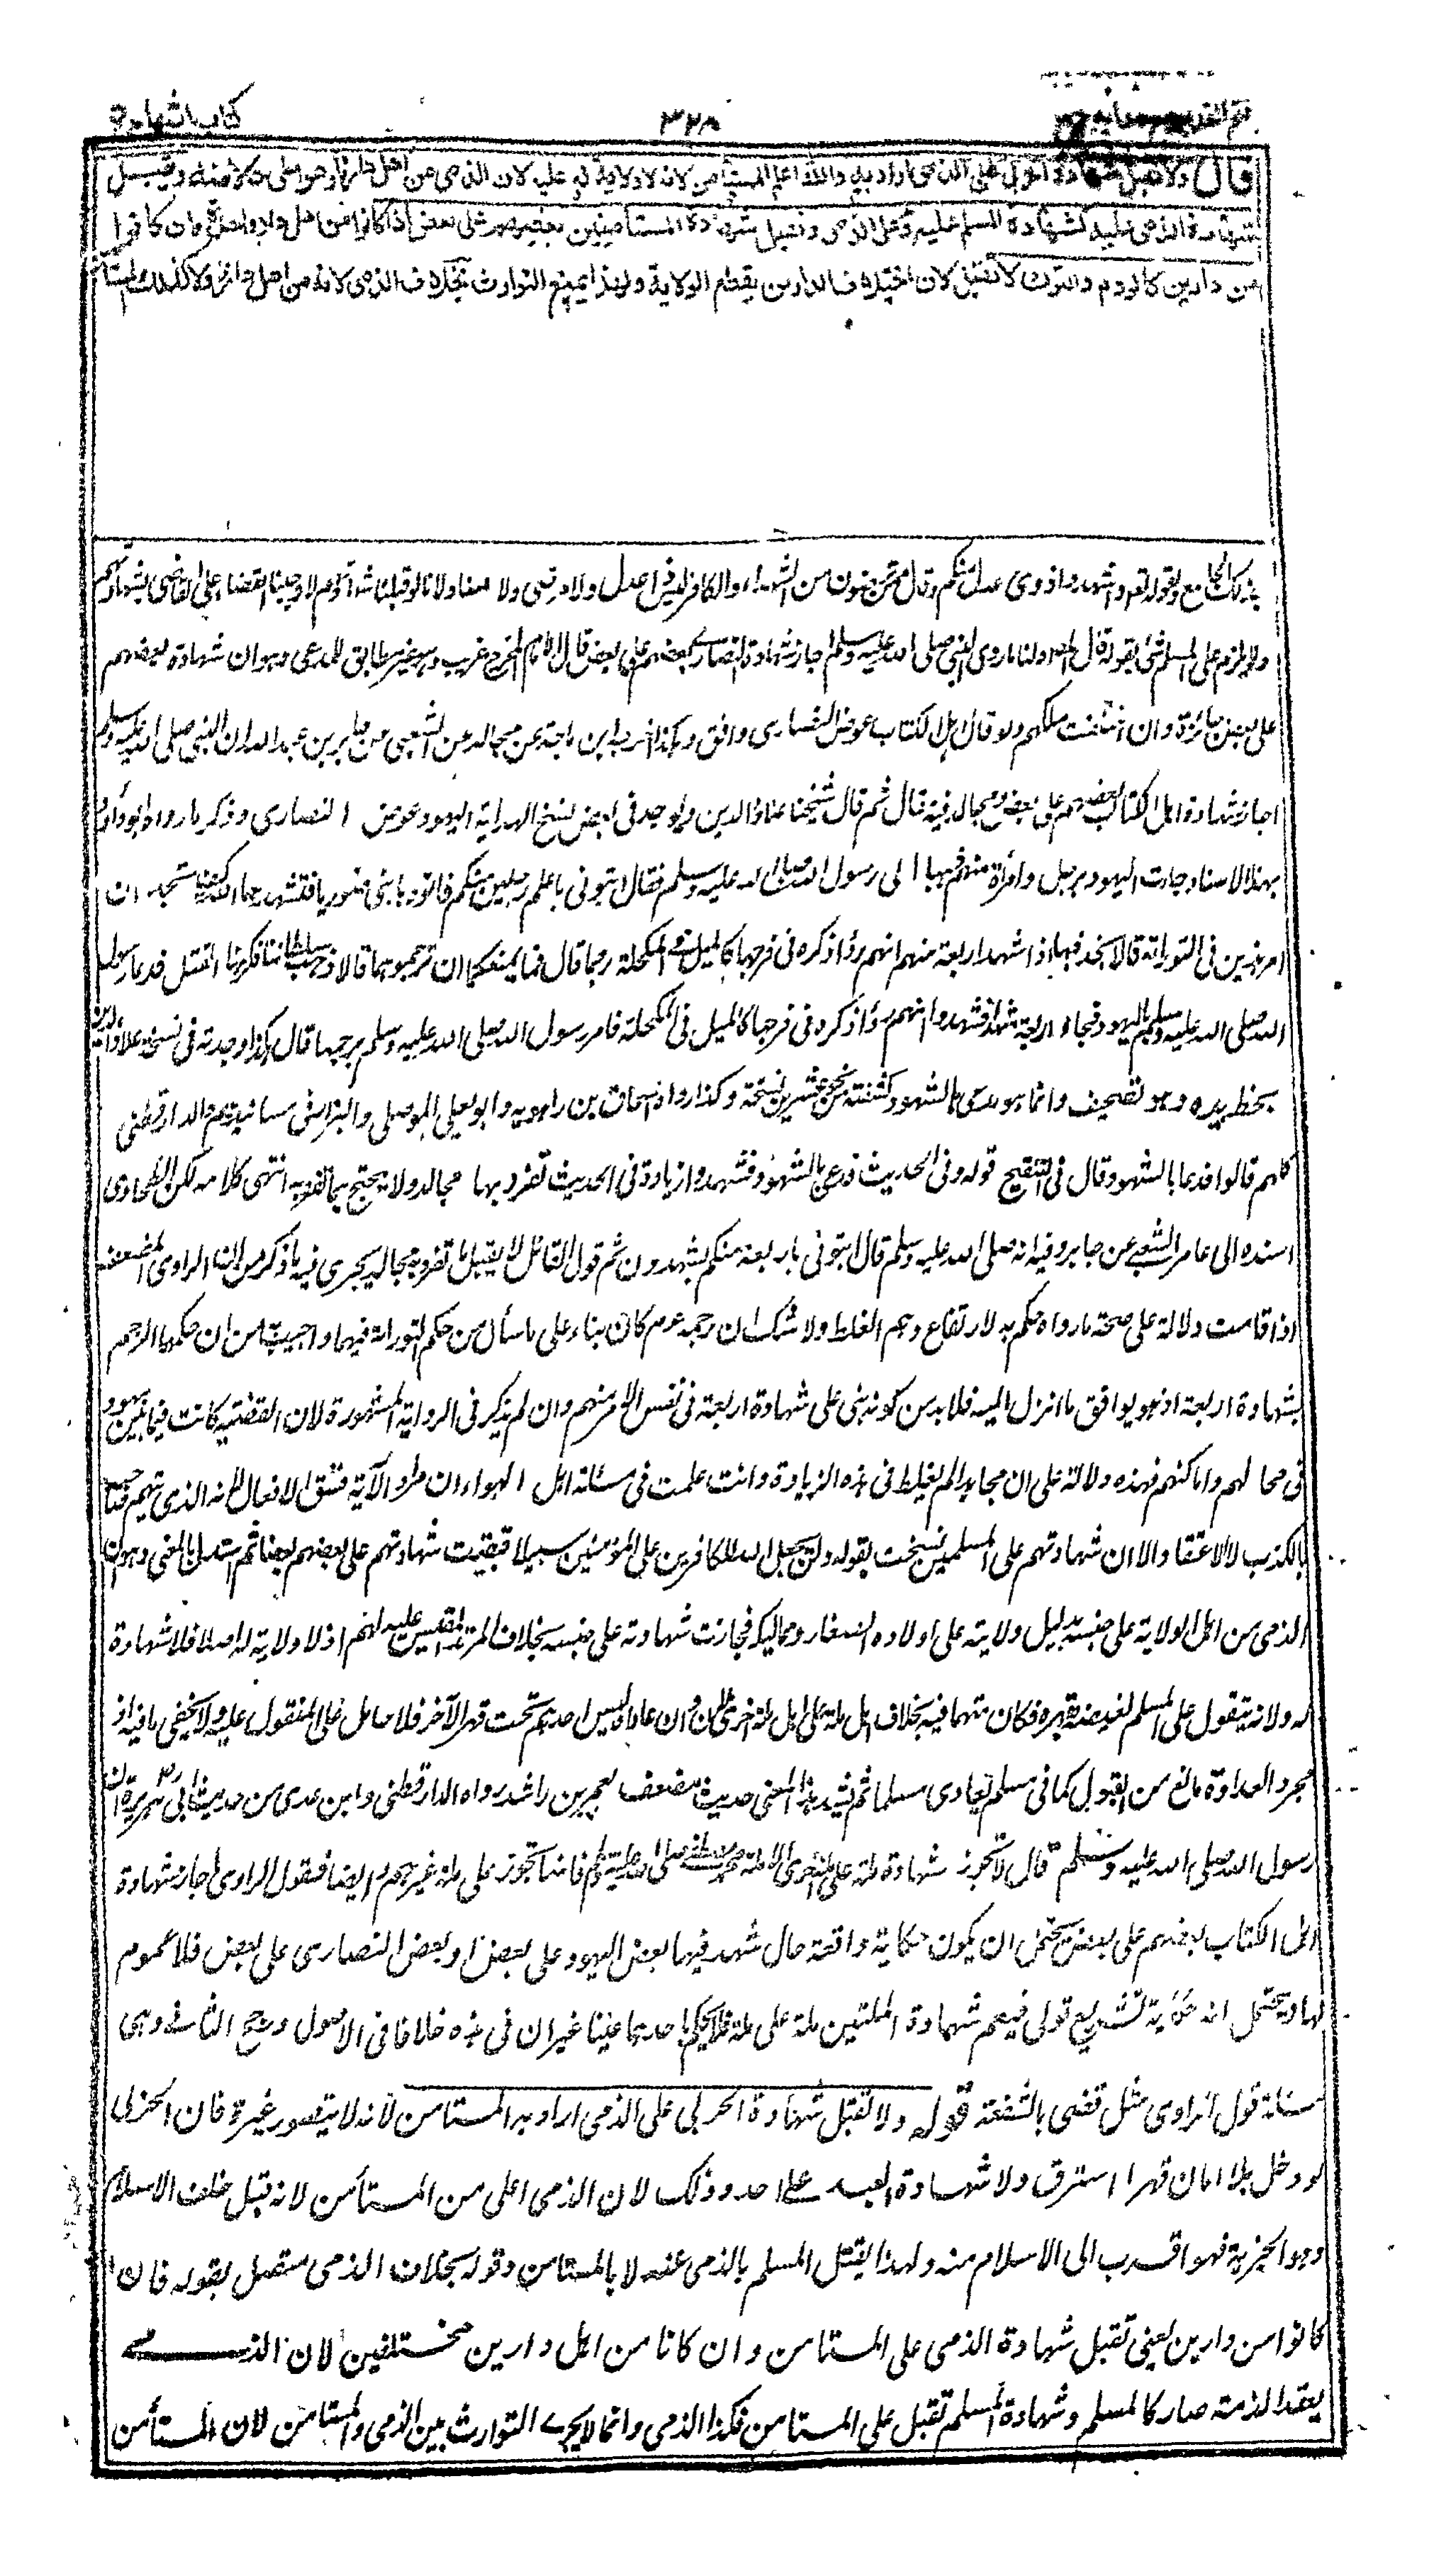 كتاب الشهادة
٣٢٨
فتح القدير مع هدايه ج٣
قال ولا تقبل شهادة الحربي على الذمي اراد به والله اعلم المستأمن لانه لا ولاية له عليه لان الذمي من اهل دارنا وهو اعلى حالا منه وتقبل
شهادة الذمي عليه كشهادة المسلم عليه وعلى الذمي وتقبل شهادة المستأمنين بعضهم على بعض اذا كانوا من اهل دار واحدة وان كانوا
من دارين كالروم والترك لا تقبل لان اختلاف الدارين يقطع الولاية ولهذا يمنع التوارث بخلاف الذمي لانه من اهل دارنا ولا كذلك المستأمن
بذلك الجامع ولقوله تعالى واشهدوا ذوي عدل منكم وقال ممن ترضون من الشهداء والكافر ليس ذا عدل ولا مرضي ولا منا ولانا لو قبلنا شهادتهم لاوجبنا القضاء على القاضي بشهادتهم
ولا يلزم على المسلم شئ بقوله قال المص ولنا ما روى النبي صلى الله عليه وسلم اجاز شهادة النصارى بعضهم على بعض قال الامام المخرج غريب وهو غير مطابق للمدعى وهو ان شهادة بعضهم
على بعض جائزة وان اختلفت مللهم ولو قال اهل الكتاب عوض النصارى وافق وهكذا اخرجه ابن ماجة عن مجالد عن الشعبي عن جابر بن عبد الله ان النبي صلى الله عليه وسلم
اجاز شهادة اهل الكتاب بعضهم على بعض ومجالد فيه مقال ثم قال شيخنا علاء الدين ويوجد في بعض نسخ الهداية اليهود عوض النصارى وذكر ما رواه ابو داود
بهذا الاسناد جاءت اليهود برجل وامرأة منهم زنيا الى رسول الله صلى الله عليه وسلم فقال ائتوني باعلم رجلين منكم فاتوه بابني صوريا فنشدهما الله كيف تجدان
امر هذين في التوراة قالا نجد فيها اذا شهد اربعة منهم انهم رأوا ذكره في فرجها كالميل في المكحلة رجما قال فما يمنعكما ان ترجموهما قالا ذهب سلطاننا فكرهنا القتل فدعا رسول
الله صلى الله عليه وسلم باليهود فجاءوا اربعة شهداء فشهدوا انهم رأوا ذكره في فرجها كالميل في المكحلة فامر رسول الله صلى الله عليه وسلم برجمهما قال هكذا وجدته في نسخة علاء الدين
بخط يده وهو تصحيف وانما هو فدعا بالشهود كشفته من نحو عشرين نسخة وكذا رواه اسحاق بن راهويه وابو يعلى الموصلي والبزار في مسانيدهم والدارقطني
كلهم قالوا فدعا بالشهود وقال في التنقيح قوله وفي الحديث فدعا بالشهود فشهدوا زيادة في الحديث تفرد بها مجالد ولا يحتج بما تفرد به انتهى كلامه لكن الطحاوي
اسنده الى عامر الشعبي عن جابر وفيه انه صلى الله عليه وسلم قال ائتوني باربعة منكم يشهدون ثم قول القائل لا يقبل ما تفرد به مجالد يجري فيه ما ذكر من ان الراوي المضعف
اذا قامت دلالة على صحة ما رواه حكم به لارتفاع وهم الغلط ولا شك ان رجمه عم كان بناء على ما سأل من حكم التوراة فيهما واجيب به من ان حكمها الرجم
بشهادة اربعة اذ هو يوافق ما انزل اليه فلا بد من كونه بنى على شهادة اربعة في نفس الامر منهم وان لم يذكر في الرواية المشهورة لان القضية كانت فيما بين يهود
في محالهم واماكنهم فهذه دلالة على ان مجالدا لم يغلط في هذه الزيادة وانت علمت في مسئلة اهل الهواء ان مراد الآية فسق الافعال لانه الذي يتهم صاحبه
بالكذب لا الاعتقاد الا ان شهادتهم على المسلمين نسخت بقوله ولن يجعل الله للكافرين على المؤمنين سبيلا فبقيت شهادتهم على بعضهم بعضا ثم استدل بالمعنى وهو ان
الذمي من اهل الولاية على جنسه بدليل ولايته على اولاده الصغار ومماليكه فجازت شهادته على جنسه بخلاف المرتد المقيس عليه لهم اذ لا ولاية له اصلا فلا شهادة
له ولانه يتقول على المسلم لغيظه بقهره فكان متهما فيه بخلاف اهل ملة على اهل ملة اخرى لانه وان عاداه ليس احدهم تحت قهر الآخر فلا حامل على التقول عليه ولا يخفى ما فيه اذ
مجرد العداوة مانع من القبول كما في مسلم يعادي مسلما ثم يشيد هذا المعنى حديث مضعف بعمر بن راشد رواه الدارقطني وابن عدي من حديث ابي هريرة ان
رسول الله صلى الله عليه وسلم قال لا تجوز شهادة ملة على ملة اخرى الا ملة محمد صلى الله عليه وسلم فانها تجوز على ملة غيرهم ايضا فقول الراوي اجاز شهادة
اهل الكتاب بعضهم على بعض يحتمل ان يكون حكاية واقعة حال شهد فيها بعض اليهود على بعض او بعض النصارى على بعض فلا عموم
لها ويحتمل انه حكاية تشريع قولي فيعم شهادة الملتين ملة على ملة فلا يحكم باحدهما عينا غير ان في هذه خلافا في الاصول ورجح الثاني وهي
مسئلة قول الراوي مثل قضى بالشفعة قوله ولا تقبل شهادة الحربي على الذمي اراد به المستأمن لانه لا يتصور غيره فان الحربي
لو دخل بلا امان قهرا استرق ولا شهادة للعبد على احد وذلك لان الذمي اعلى من المستأمن لانه قبل خلف الاسلام
وهو الجزية فهو اقرب الى الاسلام منه ولهذا يقتل المسلم بالذمي عنده لا بالمستأمن وقوله بخلاف الذمي متصل بقوله فان
كانوا من دارين يعني تقبل شهادة الذمي على المستأمن وان كانا من اهل دارين مختلفين لان الذمي
بعقد الذمة صار كالمسلم وشهادة المسلم تقبل على المستأمن فكذا الذمي وانما لا يجري التوارث بين الذمي والمستأمن لان المستأمن